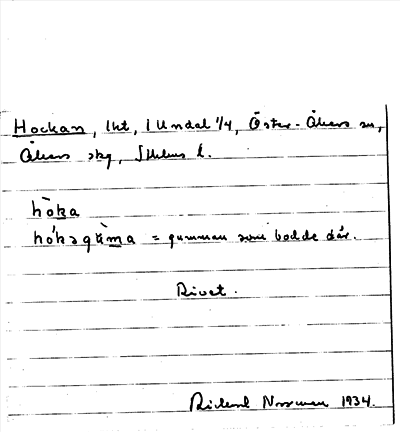 Hockan, lht, i Undal 1/4, Öster-Åkers sn,
Åkers skg, Sthlms l.
hòka
hókəgùma = gumman som bodde där.
Rivet.
Rickard Norrman 1934.